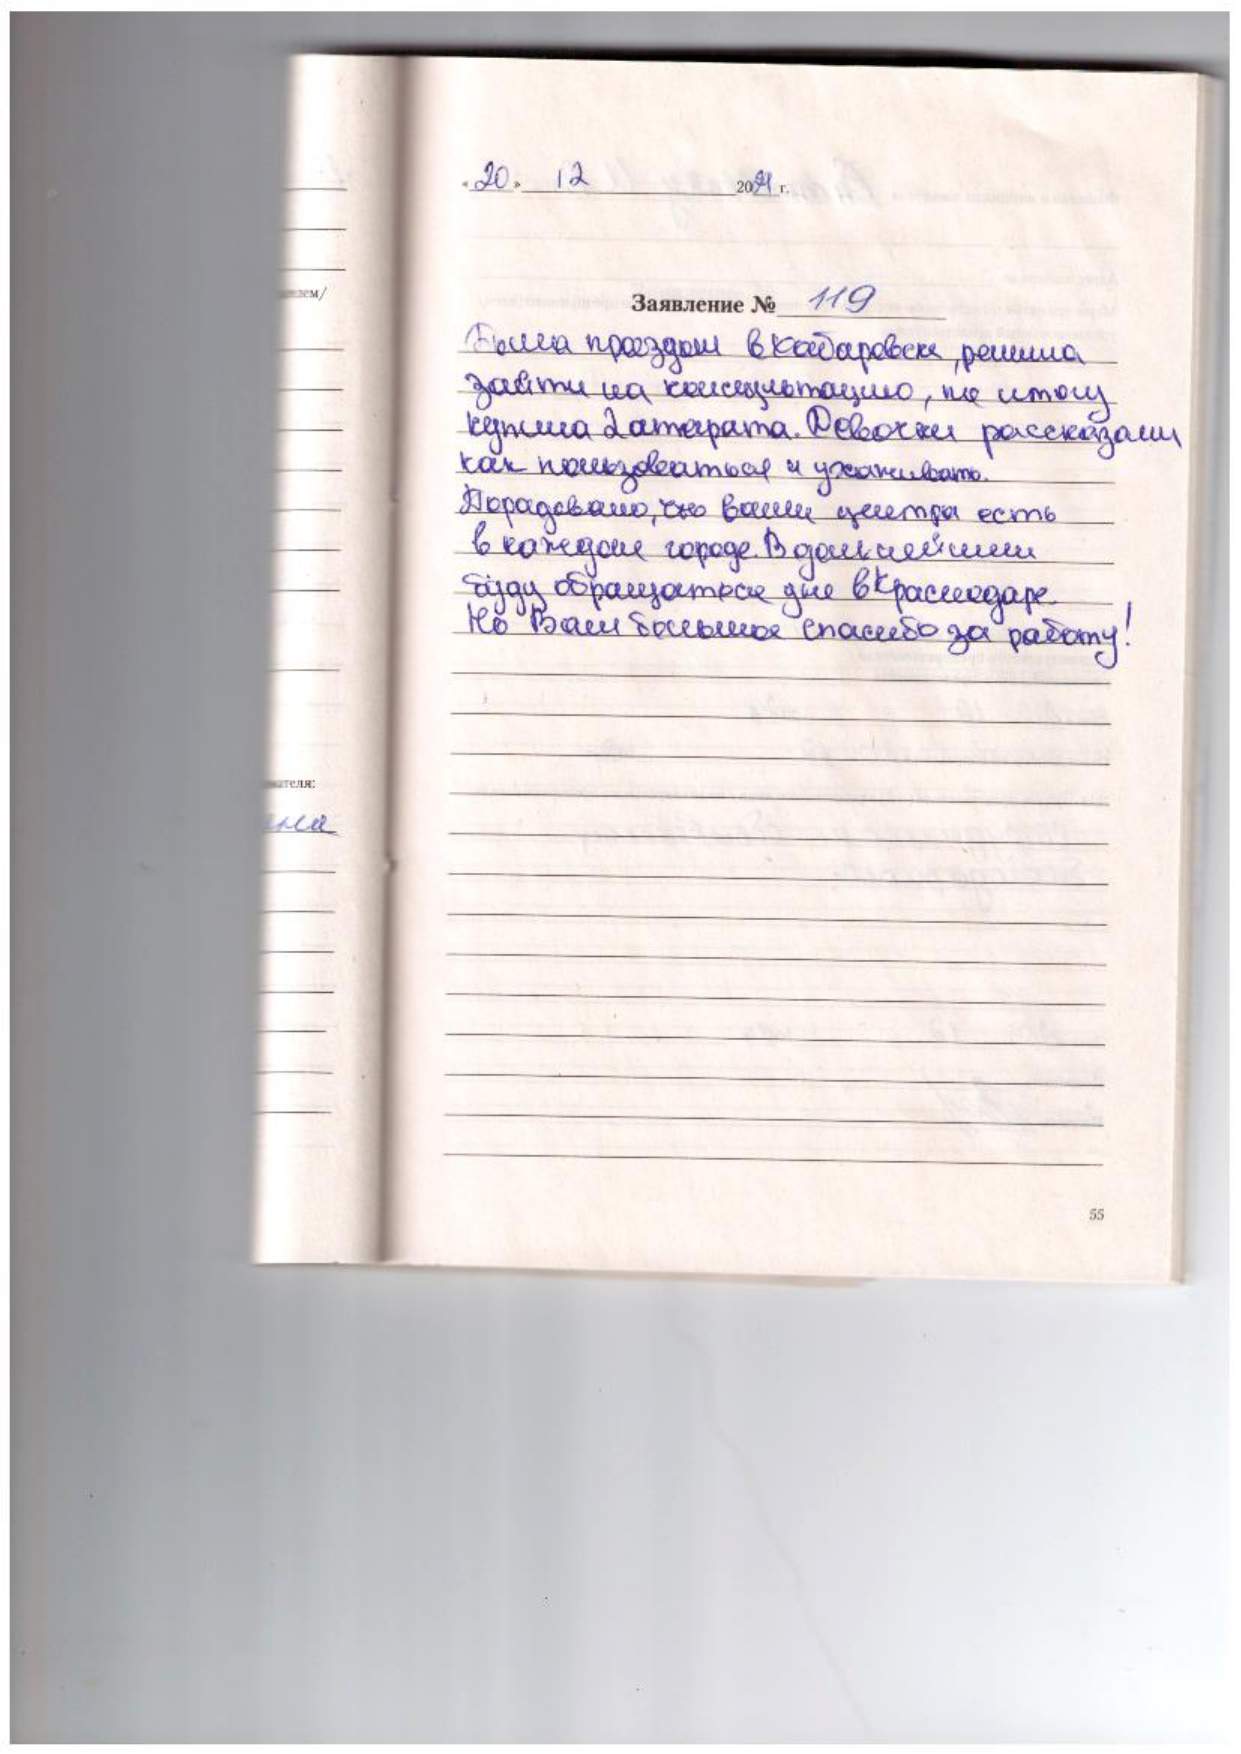 «20» 12 2021 г.
ателем/
Заявление № 119
Была проездом в Хабаровске, решила
зайти на консультацию, по итогу
купила 2 аппарата. Девочки рассказали
как пользоваться и ухаживать.
Порадовало, что ваши центра есть
в каждом городе. В дальнейшем
буду обращаться уже в Краснодаре.
Но Вам большое спасибо за работу!
ателя:
55